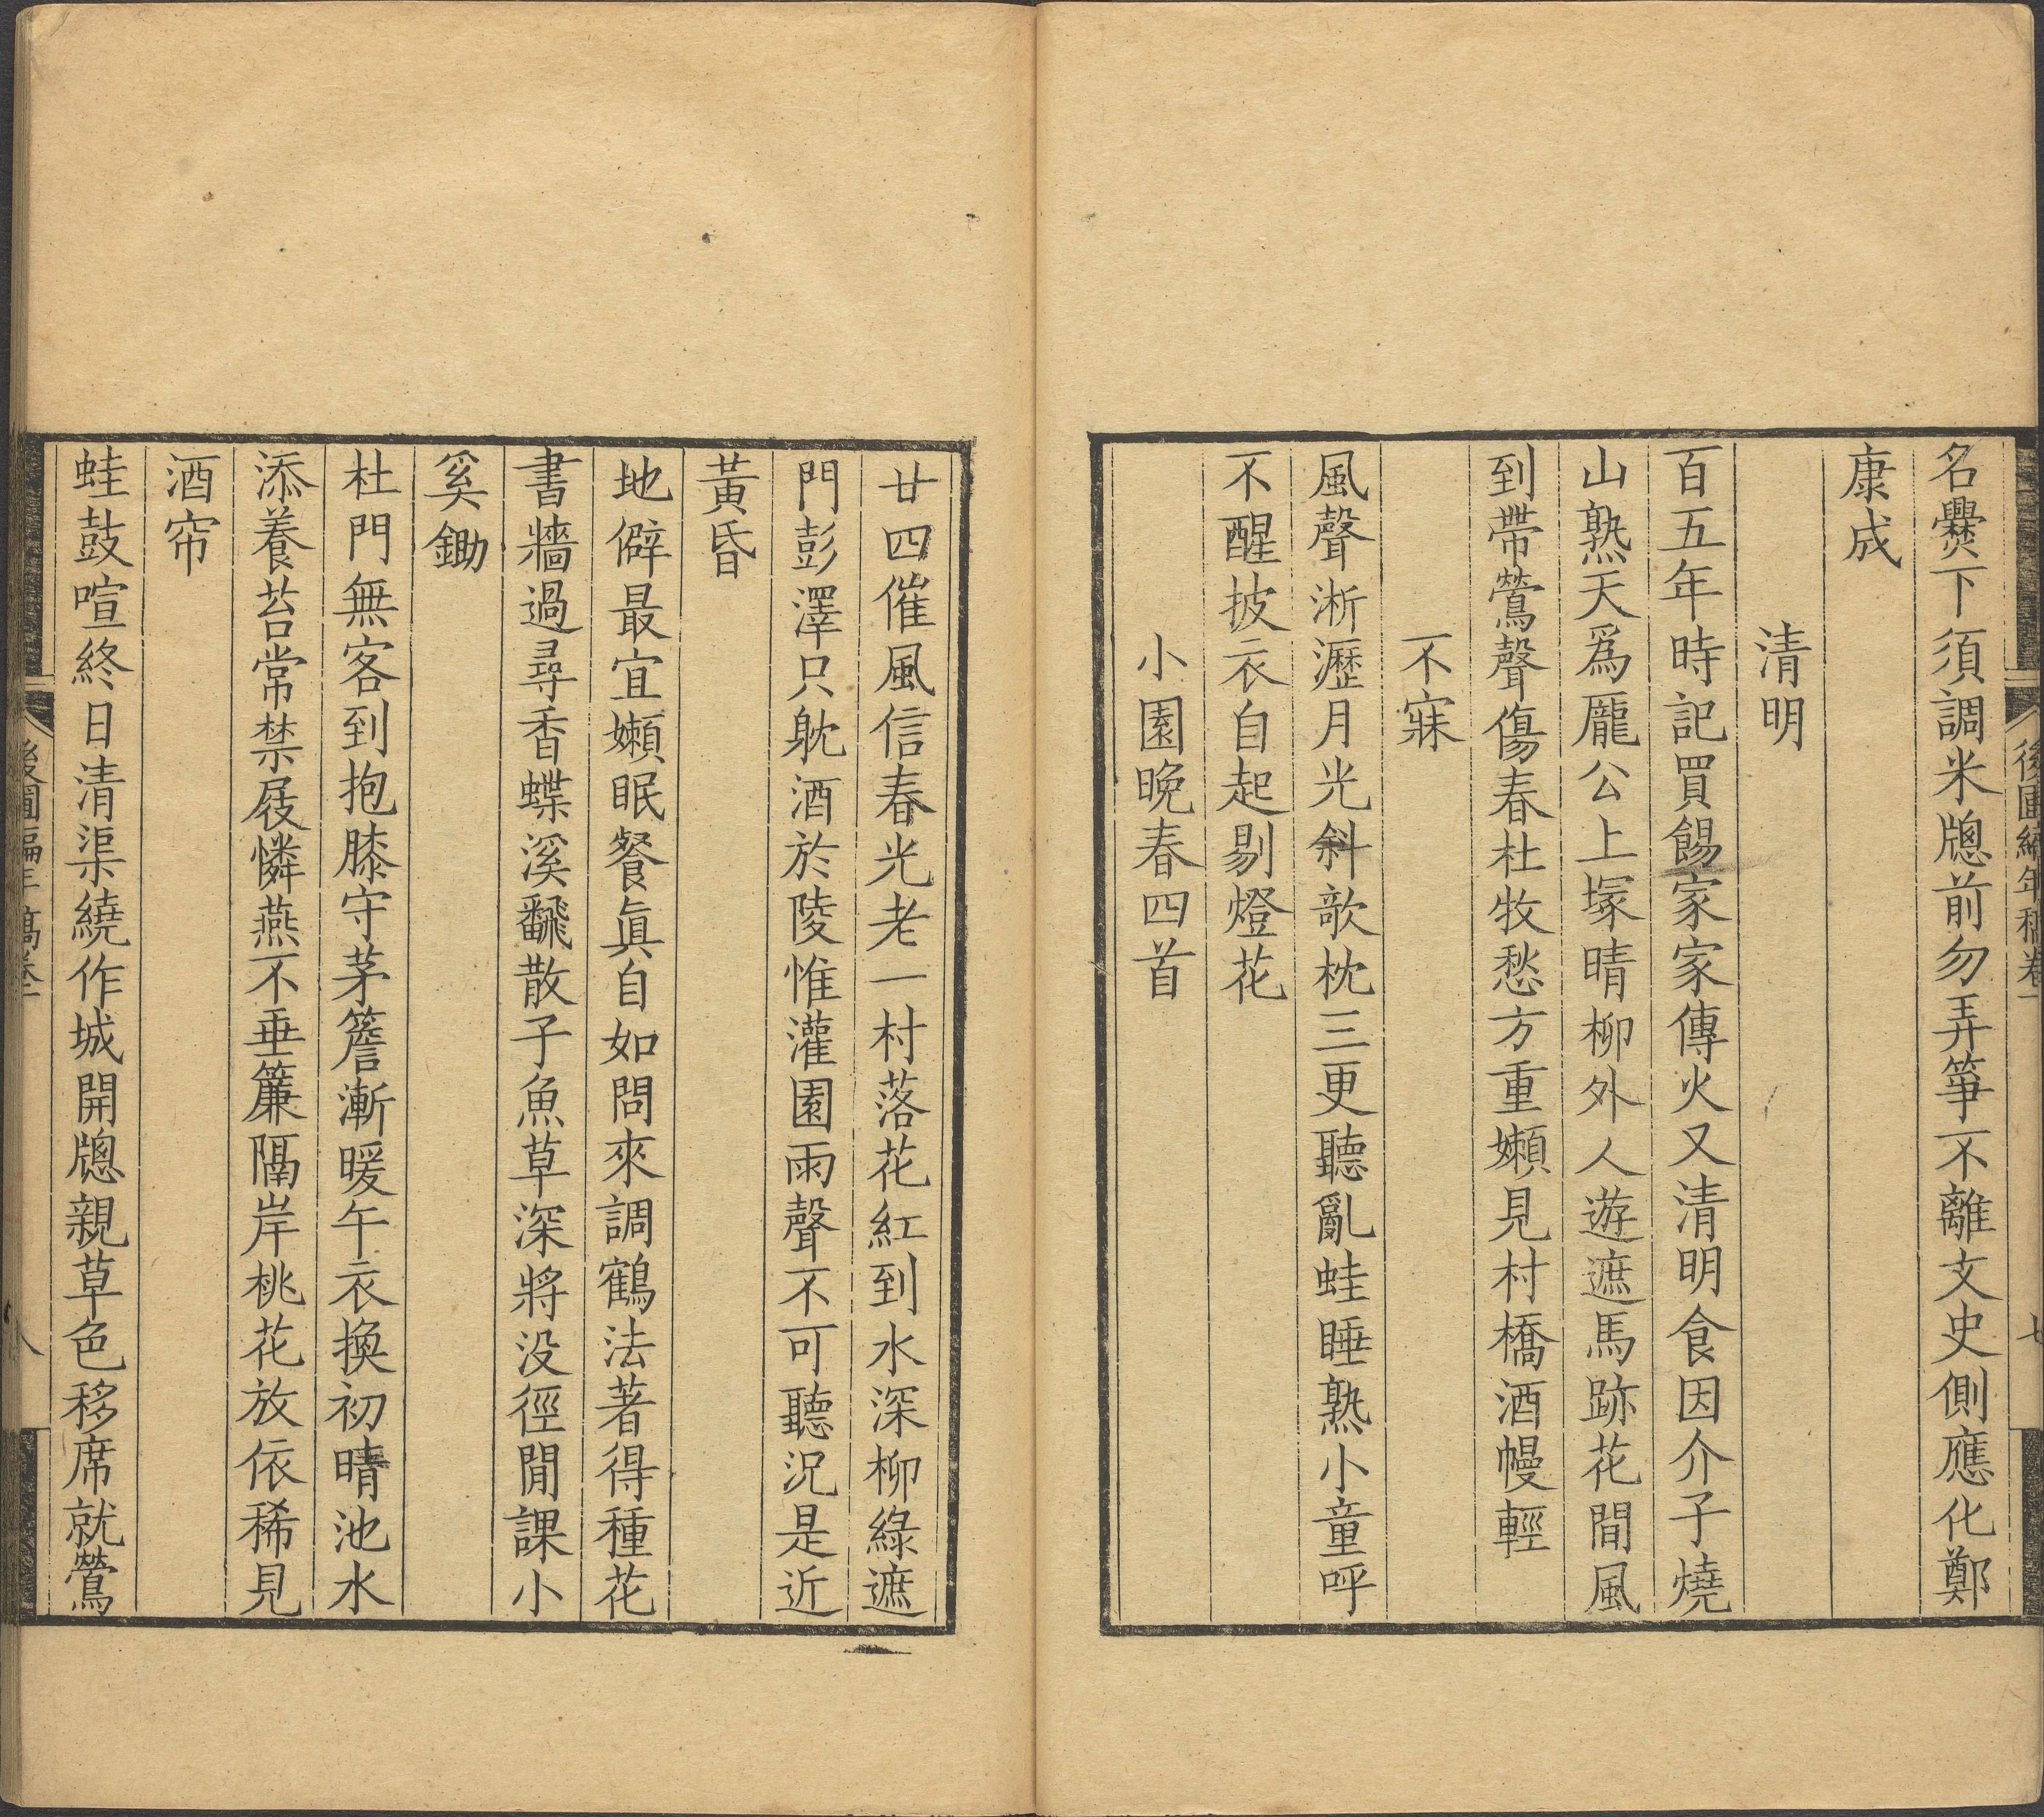 名爨下須調米牕前勿弄箏不離文史側應化鄭
康成
清明
百五年時記買餳家家傳火又清明食因介子燒
山熟天爲龐公上塚晴柳外人遊遮馬跡花間風
到帶鶯聲傷春杜牧愁方重嬾見村橋酒幔輕
不寐
風聲淅瀝月光斜欹枕三更聽亂蛙睡熟小童呼
不醒披衣自起剔燈花
小園晚春四首
廿四催風信春光老一村落花紅到水深柳綠遮
門彭澤只躭酒於陵惟灌園雨聲不可聽況是近
黃昏
地僻最宜嬾眠餐眞自如問來調鶴法著得種花
書牆過尋香蝶溪飜散子魚草深將没徑閒課小
奚鋤
杜門無客到抱膝守茅簷漸暖午衣換初晴池水
添養苔常禁屐憐燕不垂簾隔岸桃花放依稀見
酒帘
蛙鼓喧終日清渠繞作城開牕親草色移席就鶯
後圃編年稿卷
七
後圃編年稿卷
八